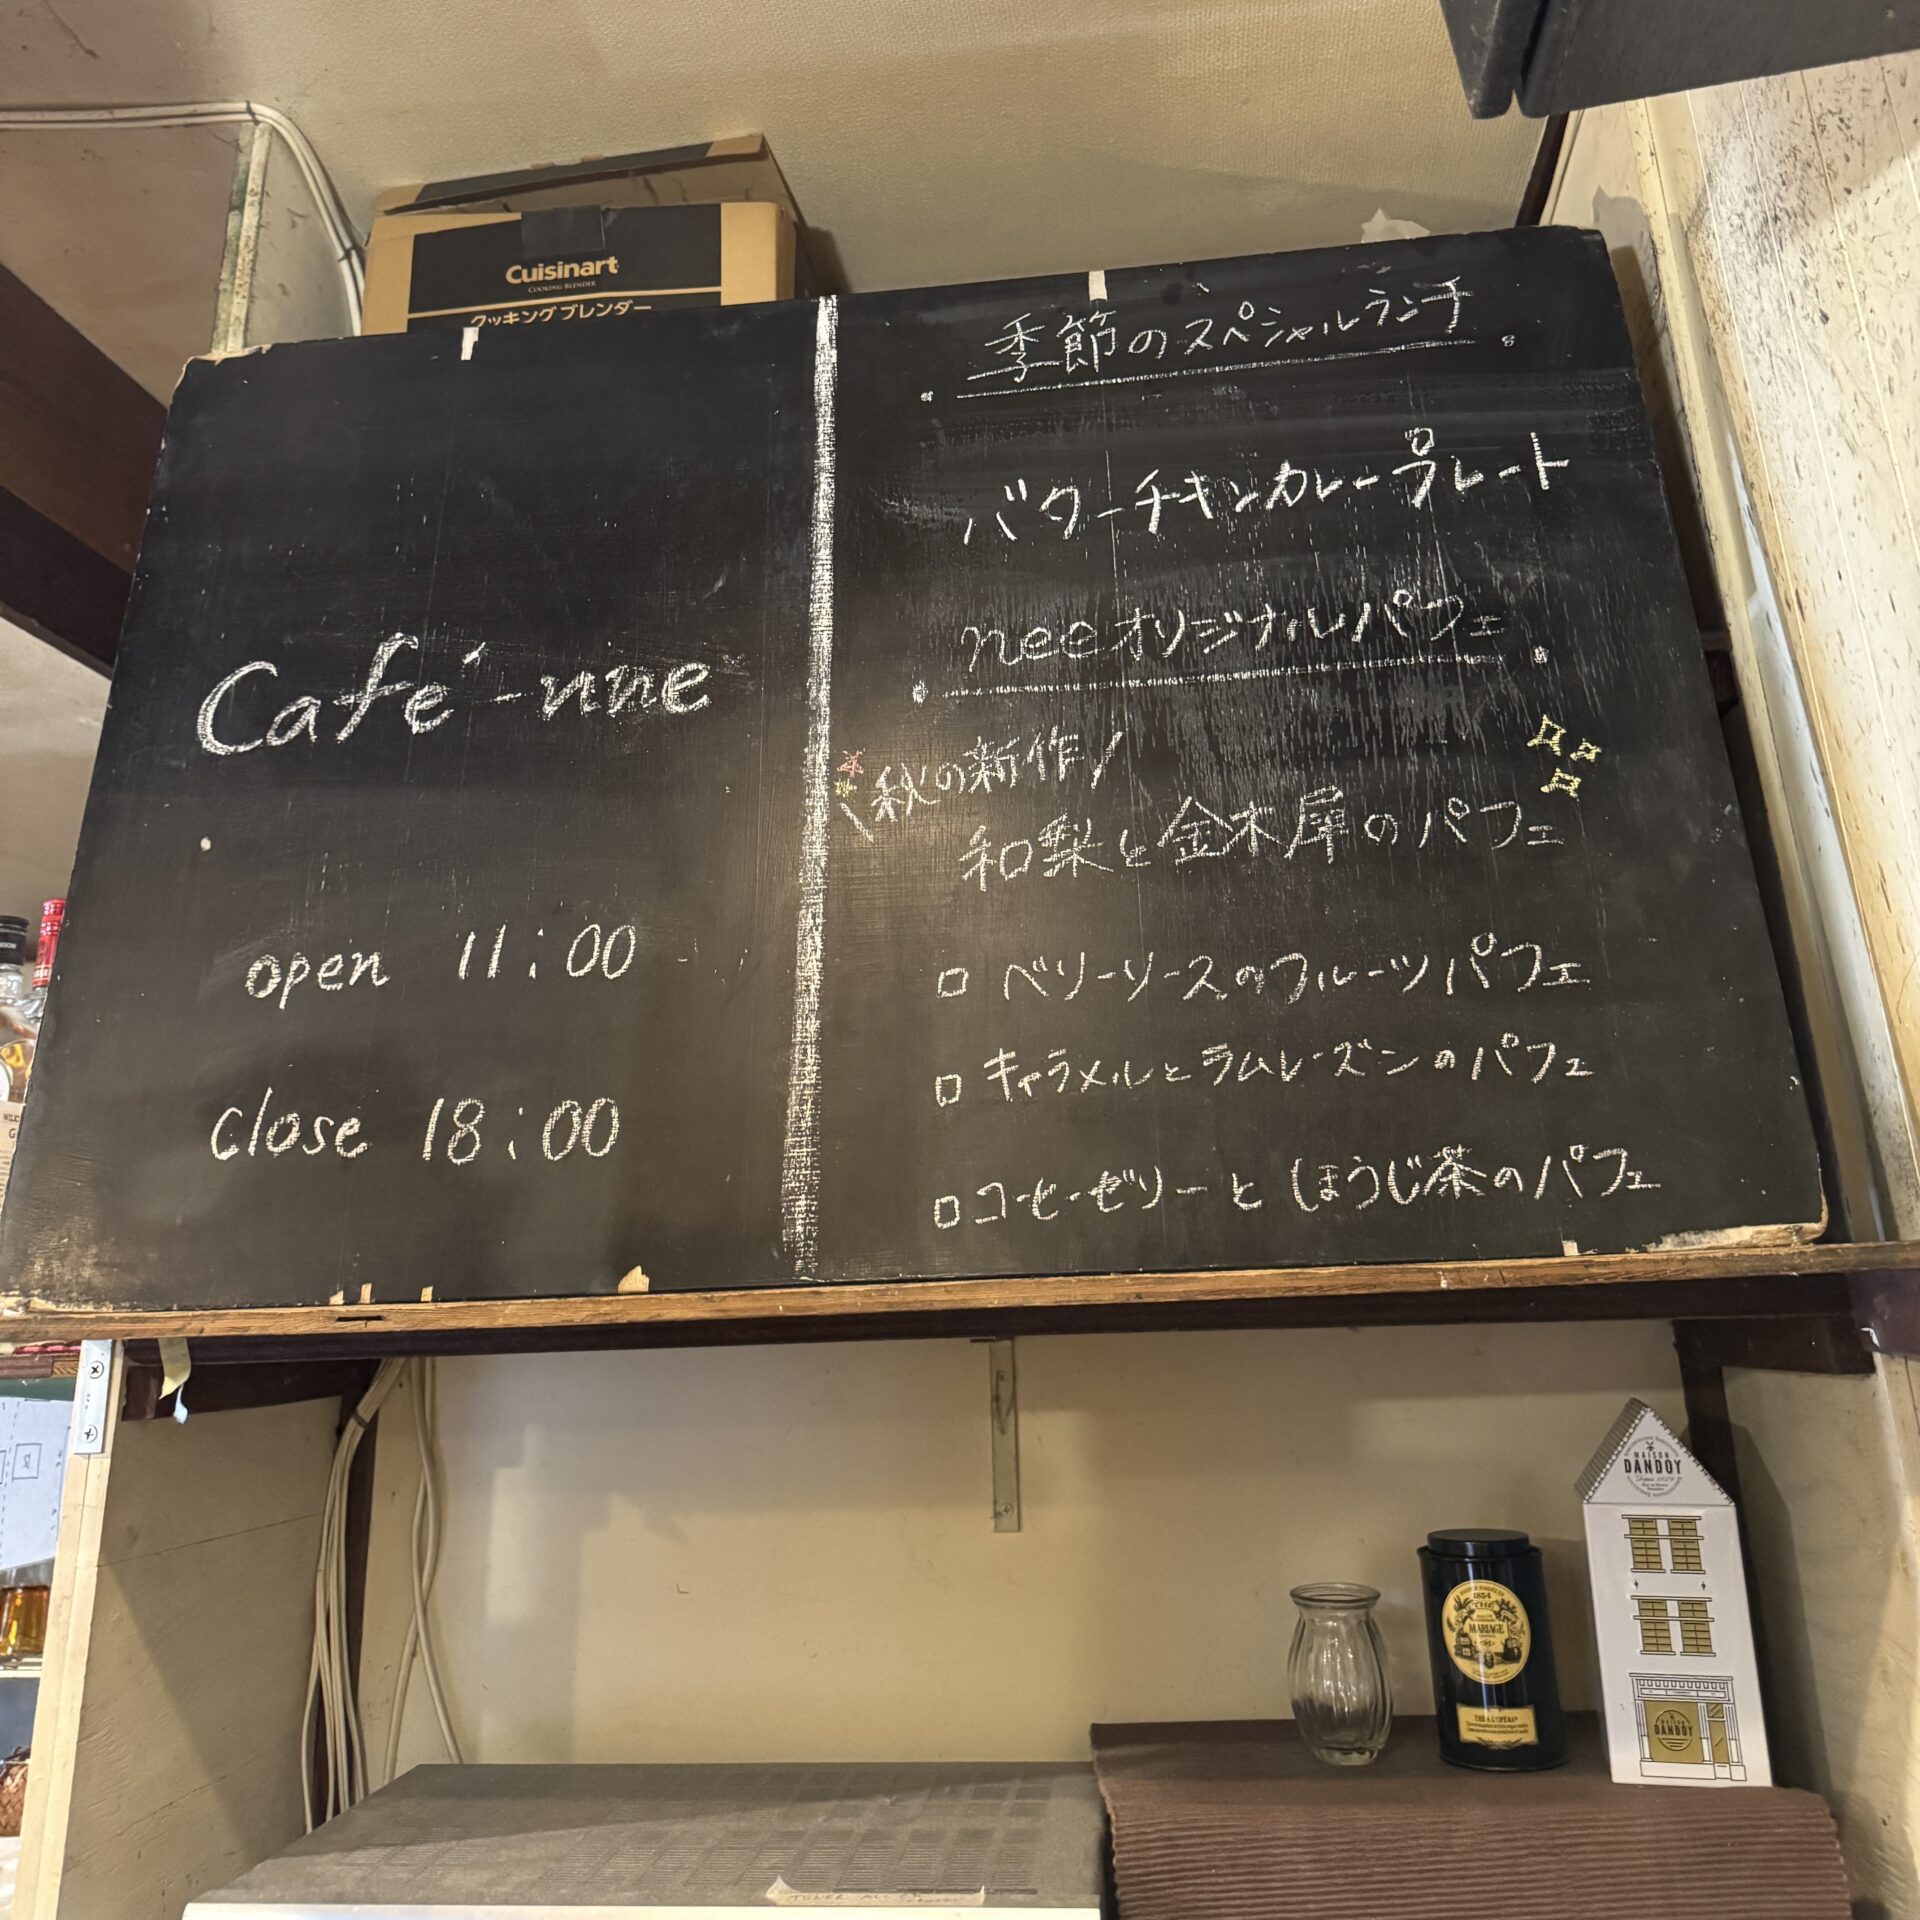 Cuisinart
COOKING BLENDER
クッキングブレンダー
Café-nne
open 11:00
close 18:00
季節のスペシャルランチ
バターチキンカレープレート
neeオリジナルパフェ
\秋の新作/
和梨と金木犀のパフェ
□ ベリーソースのフルーツパフェ
□ キャラメルとラムレーズンのパフェ
□ コーヒーゼリーとほうじ茶のパフェ
MAISON
DANDOY
Depuis 1829
1854
THÉ
MARIAGE
MAISON
DANDOY